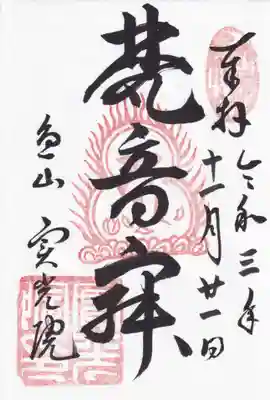 奉拝
令和三年
十一月廿一日
梵音
魚山 実光院